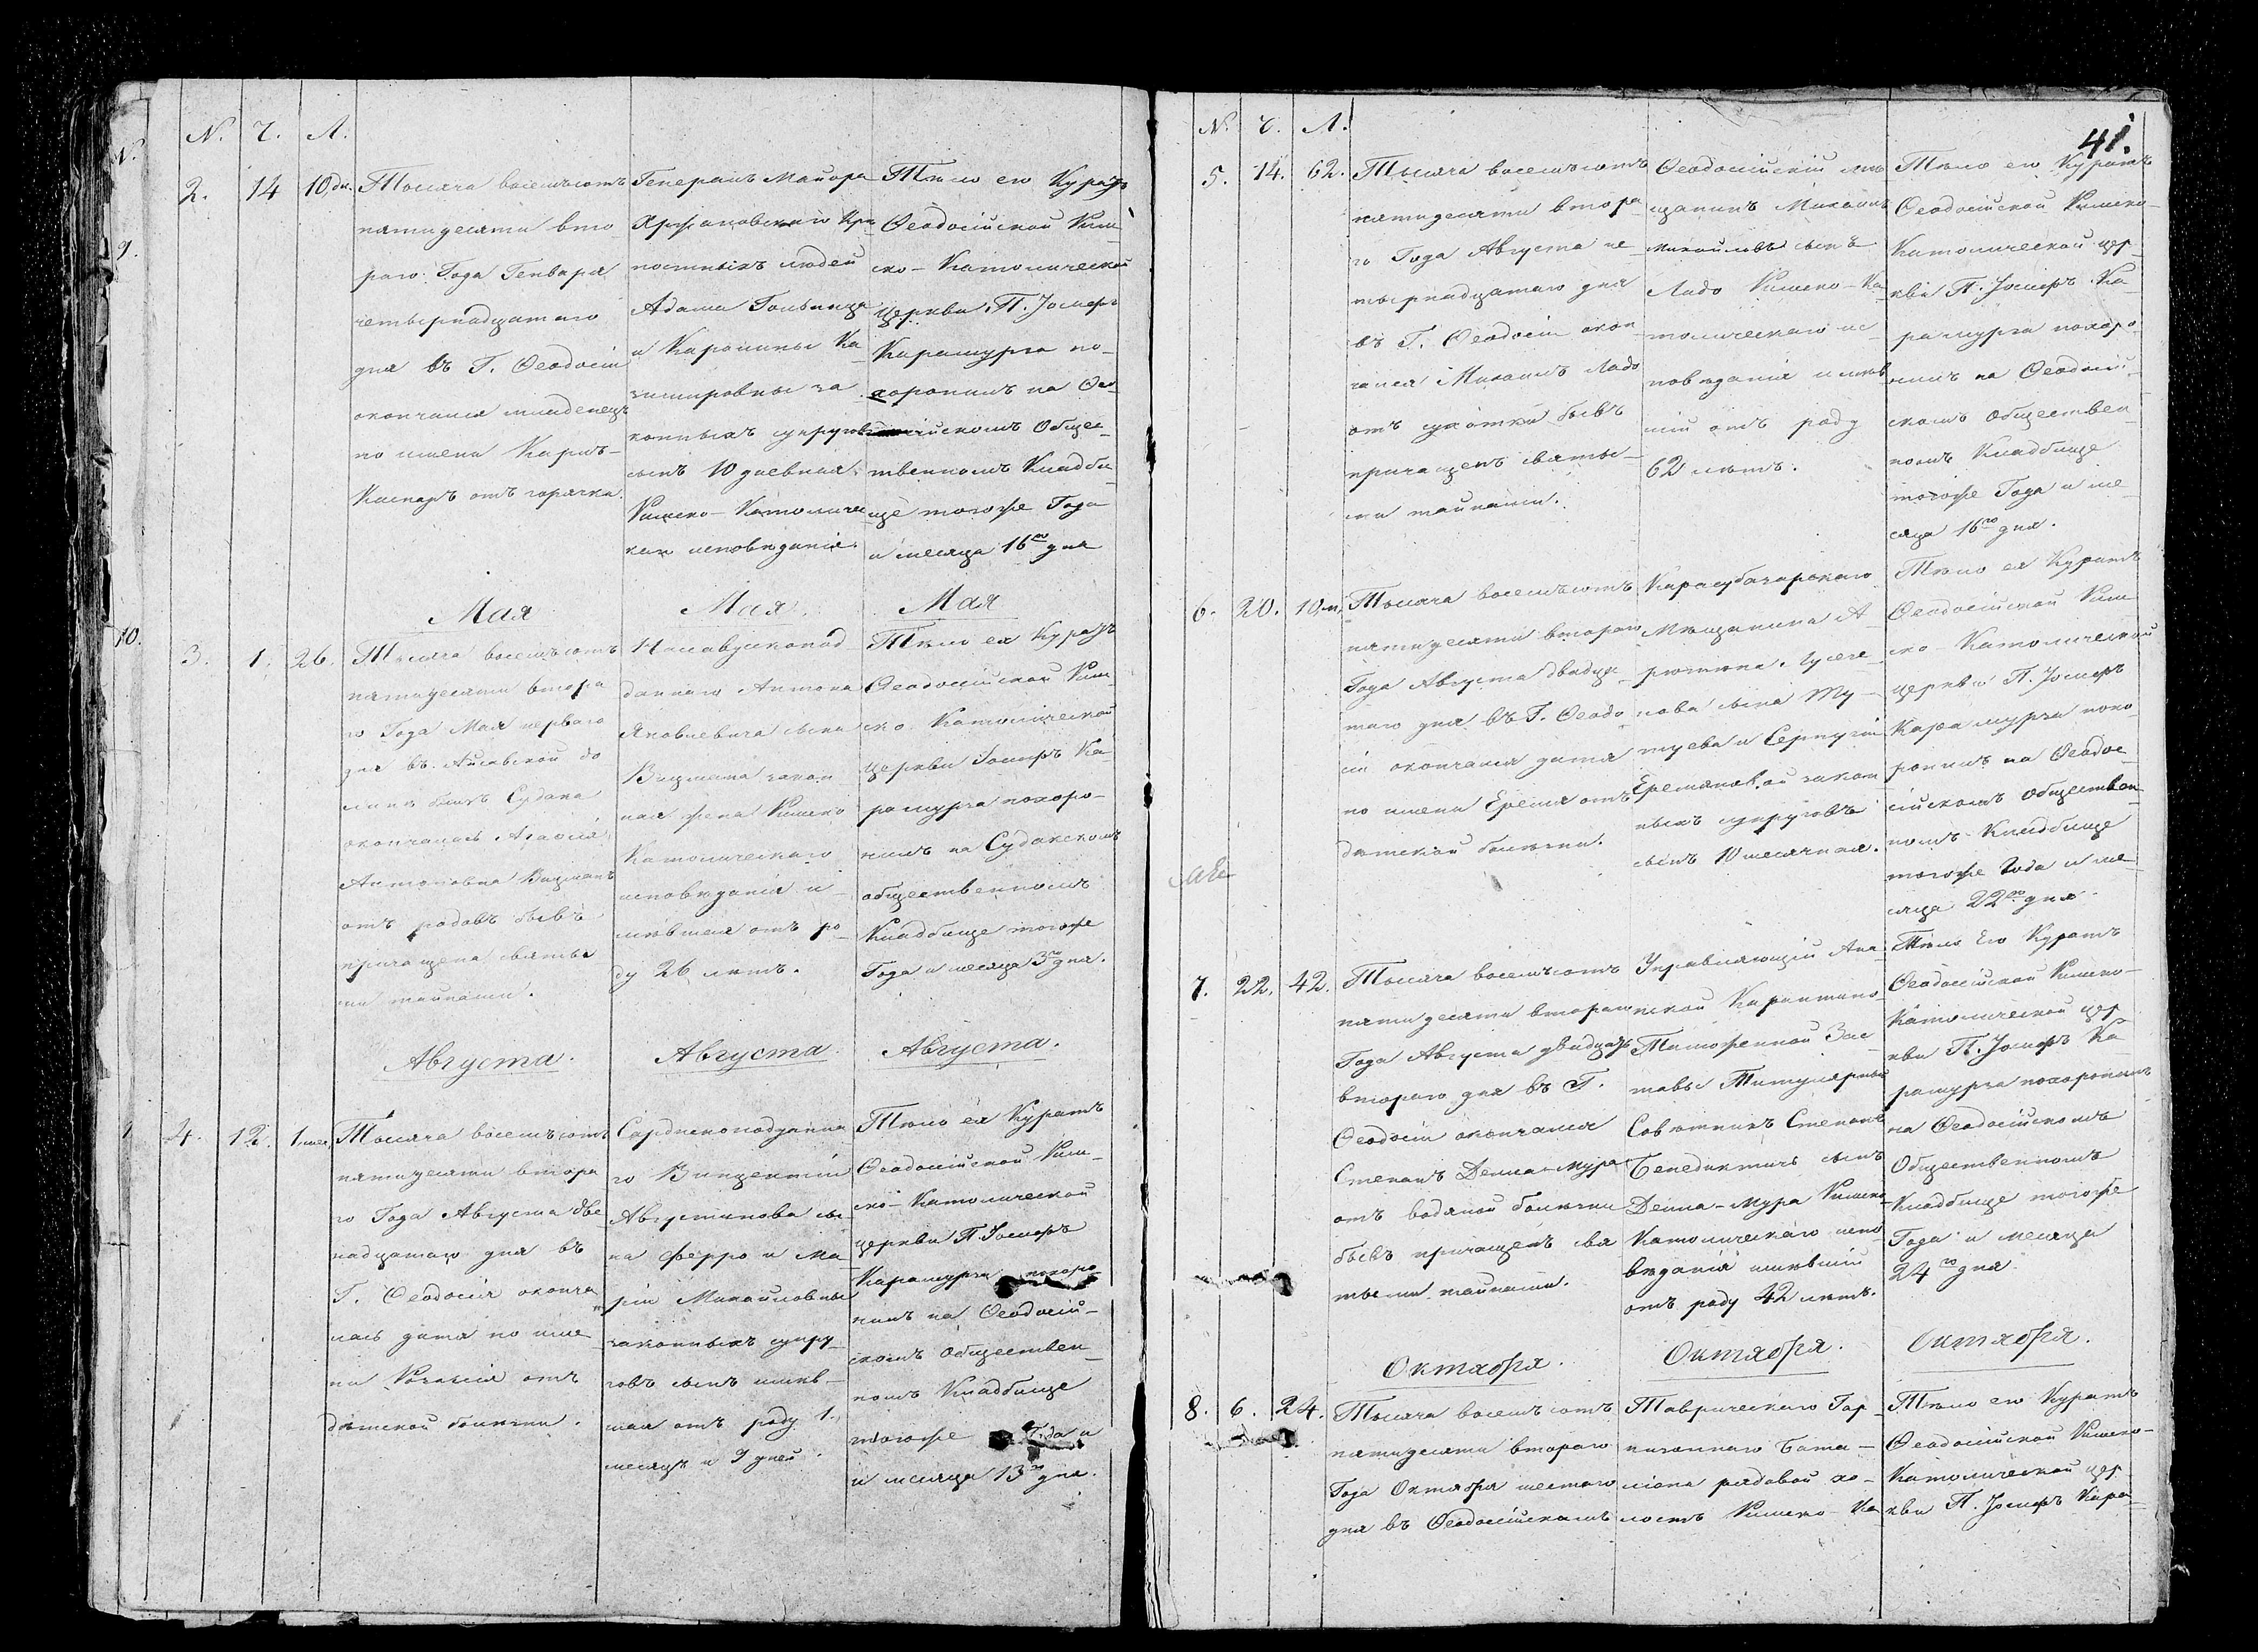 N. Ч. Л.
2. 14 10 дн.
Тысяча восемьсотъ
пятидесяти вто
раго Года Генваря
четырнадцатаго
дня въ Г. Ѳеодосіи
окончался младенецъ
по имени Карлъ-
Каспаръ отъ горячки.
Генералъ Маіора
Крѣ
постныхъ людей
Адама
и Каролины Ка
зимировны за
конныхъ супруговъ
сынъ 10 дневная
Римско-Католичес
каго исповѣданія.
Тѣло его Куратъ
Ѳеодосійской Рим
ско-Католической
церкви П. Іосифъ
Карамурза по-
хоронилъ на Ѳео
сійскомъ Общес-
твенномъ Кладби
ще тогоже Года
и месяца 16го дня
Мая
Мая.
Мая
3. 1. 26.
Тысяча восемьсотъ
пятидесяти втора
го Года Мая перваго
дня въ до
линѣ близъ Судака
окончалась Агафія
Антоновна Вицманъ
отъ родовъ бывъ
причащена святы
ми тайнами.
под
даннаго Антона
Яковлевича сына
Вицмана закон
ная жена Римско
Католическаго
исповѣданія и
мѣвшая отъ ро-
ду 26 лѣтъ.
Тѣло ея Куратъ
Ѳеодосійской Рим-
ско Католической
церкви Іосифъ Ка-
рамурза похоро-
нилъ на Судакскомъ
общественномъ
Кладбище тогоже
Года и месяца 3го дня.
Августа.
Августа.
Августа.
4. 12. 1 мес.
Тысяча восемьсотъ
пятидесяти втора
го Года Августа две
надцатаго дня въ
Г. Ѳеодосія оконча
лась дитя по име
ни Розалія отъ
дѣтской болѣзни.
Сардинскоподданна
го Винцентій
Августинова сы
на Ферро и Ма-
ріи Михаиловны
законныхъ супру-
говъ сынъ имѣв-
шая отъ роду 1.
месяцъ и 9 дней.
Тѣло ея Куратъ
Ѳеодосійской Рим-
ско-Католической
церкви П. Іосифъ
Карамурза похоро-
нилъ на Ѳеодосій-
скомъ Обществен-
номъ Кладбище
тогоже Года и
и месяца 13го дня.
41.
N. Ч. Л.
5. 14. 62.
Тысяча восемьсотъ
пятидесяти втора-
го Года Августа че-
тырнадцатаго дня
въ Г. Ѳеодосіи окон-
чался Михаилъ Ладо
отъ сухотки бывъ
причащенъ святы-
ми тайнами.
Ѳеодосійскій мѣ
щанинъ Михаилъ
Михайловъ сынъ
Ладо Римско-Ка
толическаго ис-
повѣданія имѣв
шій отъ роду
62 лѣтъ.
Тѣло его Куратъ
Ѳеодосійской Римско-
Католической цер-
кви П. Іосифъ Ка-
рамурза похоро
нилъ на Ѳеодосій-
скомъ Обществен
номъ Кладбище
тогоже Года и ме-
сяца 16го дня.
6. 20. 10 м.
Тысяча восемьсотъ
пятидесяти втораго
Года Августа двадца-
таго дня въ Г. Ѳеодо
сіи окончался дитя
по имени Еремя отъ
дѣтской болѣзни.
Карасубазарскаго
Мѣщанина А-
рютюна
нова сына Ту-
туева и
Еремяновой закон
ныхъ супруговъ
сынъ 10 месячная.
Тѣло ея Куратъ
Ѳеодосійской Рим
ско-Католической
церкви П. Іосифъ
Карамурза похо-
ронилъ на Ѳеодос
сійскомъ Обществен-
номъ Кладбище
тогоже Года и ме-
сяца 22го дня.
7. 22. 42.
Тысяча восемьсотъ
пятидесяти втораго
Года Августа двадцать
втораго дня въ Г.
Ѳеодосіи окончался
Степанъ Делла-Мура
отъ водяной болѣзни
бывъ причащенъ свя
тыми тайнами.
Управляющій Ана
пской Карантино-
Таможенной Зас-
тавы Титулярный
Совѣтникъ Степанъ
Бенедиктичъ сынъ
Делла-Мура Римско-
Католическаго испо
вѣданія имѣвшій
отъ роду 42 лѣтъ.
Тѣло Его Куратъ
Ѳеодосійской Римско-
Католической цер
кви П. Іосифъ Ка-
рамурза похоронилъ
на Ѳеодосійскомъ
Общественномъ
Кладбище тогоже
Года и месяца
24го дня.
Октября.
Октября.
Октября.
8. 6. 24.
Тысяча восемьсотъ
пятидесяти втораго
Года Октября шестаго
дня въ Ѳеодосійскомъ
Таврическаго Гар-
низоннаго Бата-
ліона рядовой хо-
лостъ Римско-Ка
Тѣло его Куратъ
Ѳеодосійской Римско-
Католической цер-
кви П. Іосифъ Кара-